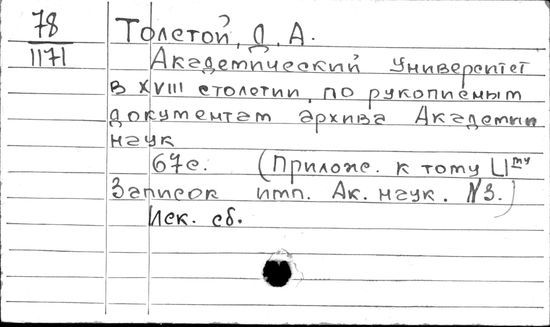 78
1171
Толстой, Д. А.
Академический университет
в XVIII столетии, по рукописным
документам архива Академии
наук
67с. (Прилож. к тому LI ту
Записок имп. Ак. наук. №3.)
Иск. сб.